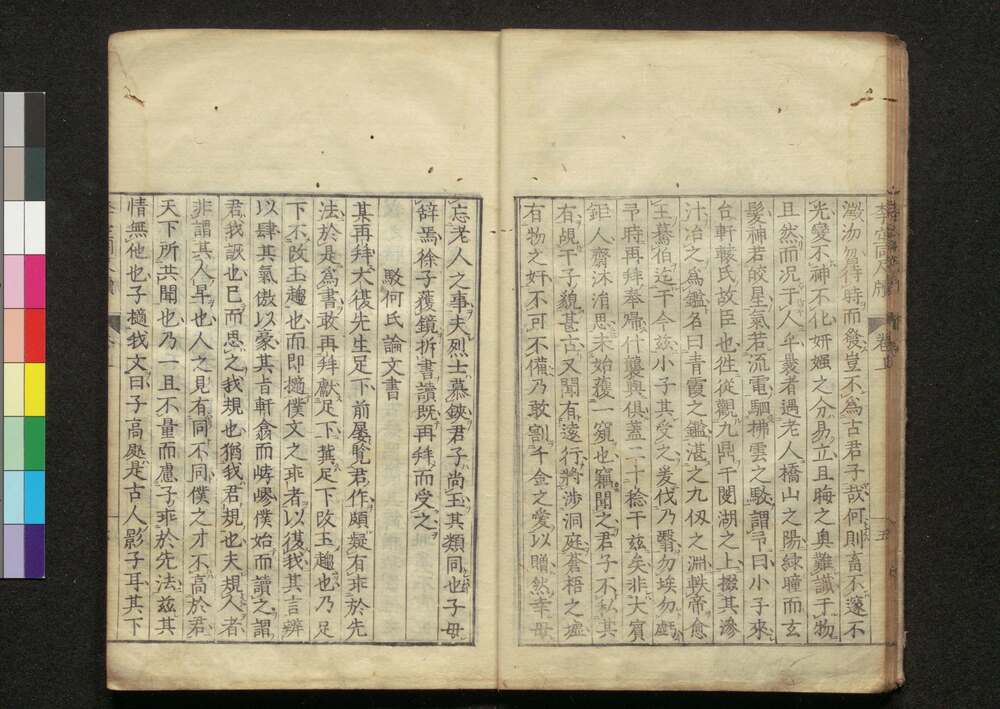 澂沕曷待時而發豈不為古君子哉何則畜不邃不
光變不神不化妍媸之分易立且晦之奥難識于物
且然而况于人乎曩者過老人橋山之陽綠瞳而玄
髮神若皎星氣若流電駟拂雲之駿謂予曰小子來
台軒轅氏故臣也徃從觀九鼎于閿湖之上掇其滲
汁冶之為鑑名曰青霞之鑑湛之九仭之淵軼帝愈
王驀伯迄于今兹小子其受之爰伐乃翳勿埃勿虧
予時再拜奉歸什襲與俱蓋二十稔于兹矣非大賓
鉅人齋沐湑思未始獲一窺也竊聞之君子不私其
有覘于子貌甚古又聞有遠行將涉洞庭蒼梧之墟
有物之奸不可不備乃敢割千金之愛以贈然幸毋
忘老人之事夫烈士慕鋏君子尚玉其類同也子毋
辞焉徐子獲鏡折書讀既再拜而受之
駁何氏論文書
某再拜大復先生足下前屢覽君作頗疑有乖於先
法於是為書敢再拜獻足下冀足下改玉趨也乃足
下不改玉趨也而即擿僕文之乖者以復我其言辨
以肆其氣傲以豪其旨軒翕而嵺嵺僕始而讀之謂
君我詼也已而思之我規也猶我君規也夫規人者
非謂其人卑也人之見有同不同僕之才不高於君
天下所共聞也乃一旦不量而慮子乖於先法兹其
情無他也子擿我文曰子高處是古人影子耳其下